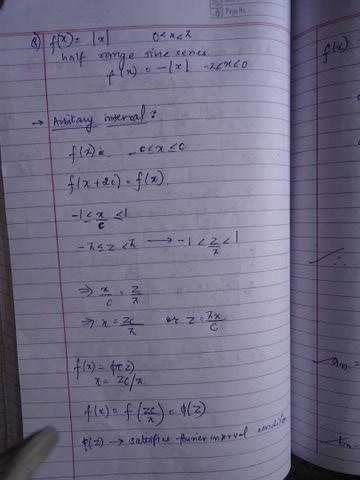 Page No.:
Q) f(x) = |x| 0<x<λ
half range sine series
f(x) = -|x| -λ<x<0
→ Arbitary interval :
f(x) = -c<x<c
f(x+2c) = f(x)
-1 ≤ x/c ≤ 1
-λ ≤ z < λ → -1 < z/λ < 1
⇒ x/c = z/λ
⇒ x = zc/λ or z = λx/c
f(x) = φ(z)
x = zc/λ
f(x) = f(zc/λ) = φ(z)
φ(z) → satisfies fourier interval condition
f(x)
∴